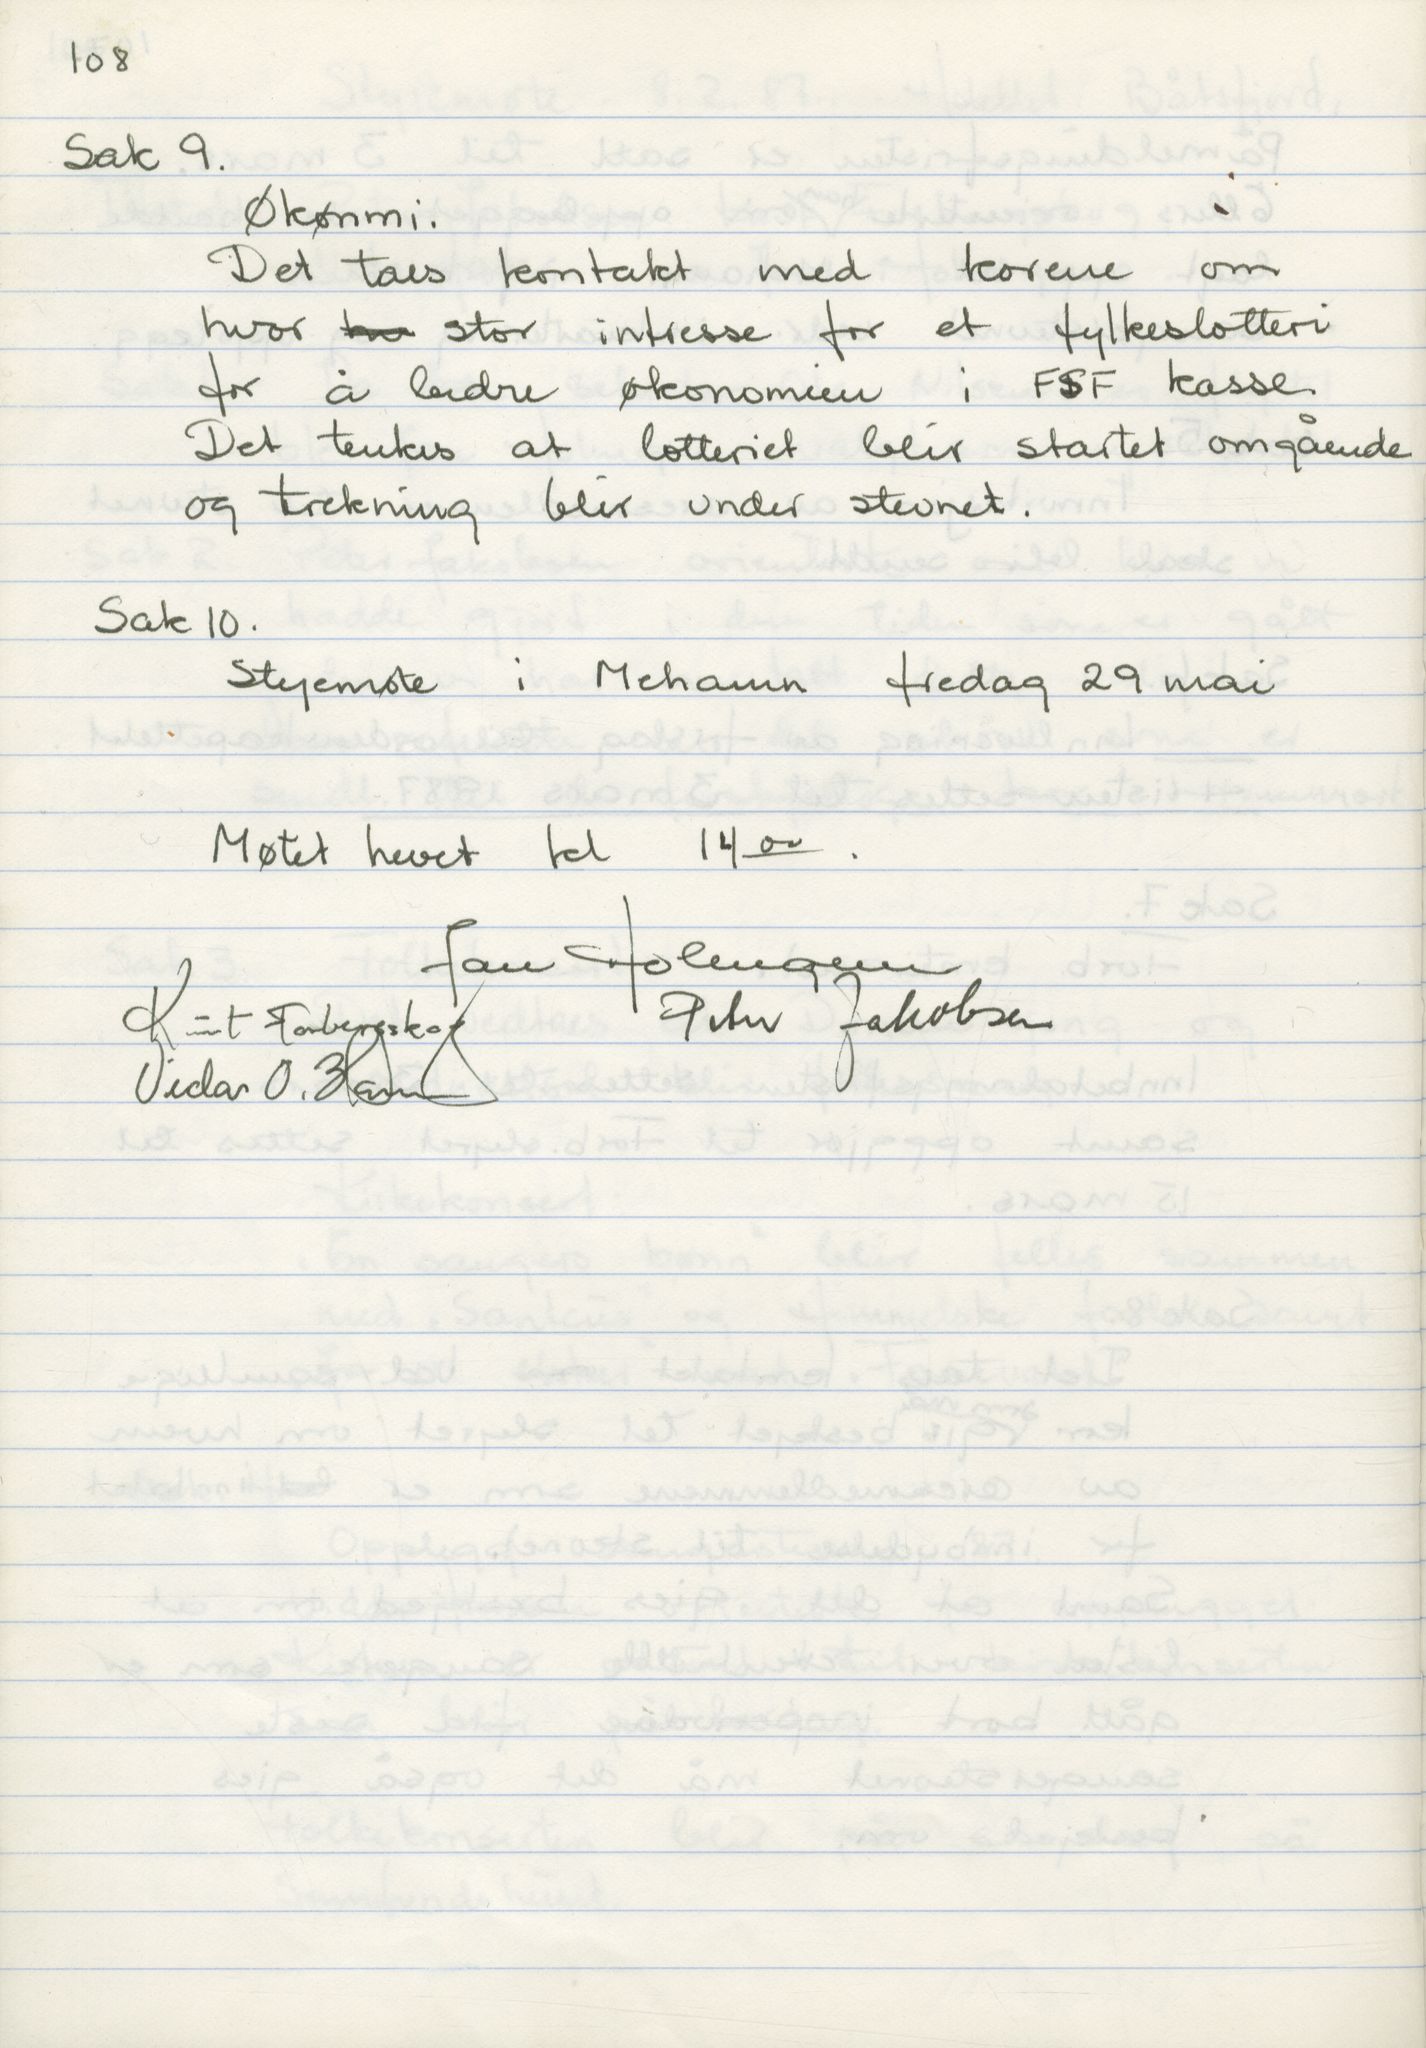 108
Sak 9.
Økønmi.
Det taes kontakt med korene om
hvor stor intresse for et fylkeslotteri
for å bedre økonomien i FSF kasse.
Det tenkes at lotteriet blir startet omgående
og trekning blir under stevnet.
Sak 10.
Styemøte i Mehamn fredag 29 mai
Møtet hevet kl 14 00.
Jan Holmgren
Knut Peder Jakobsen
Vidar O.